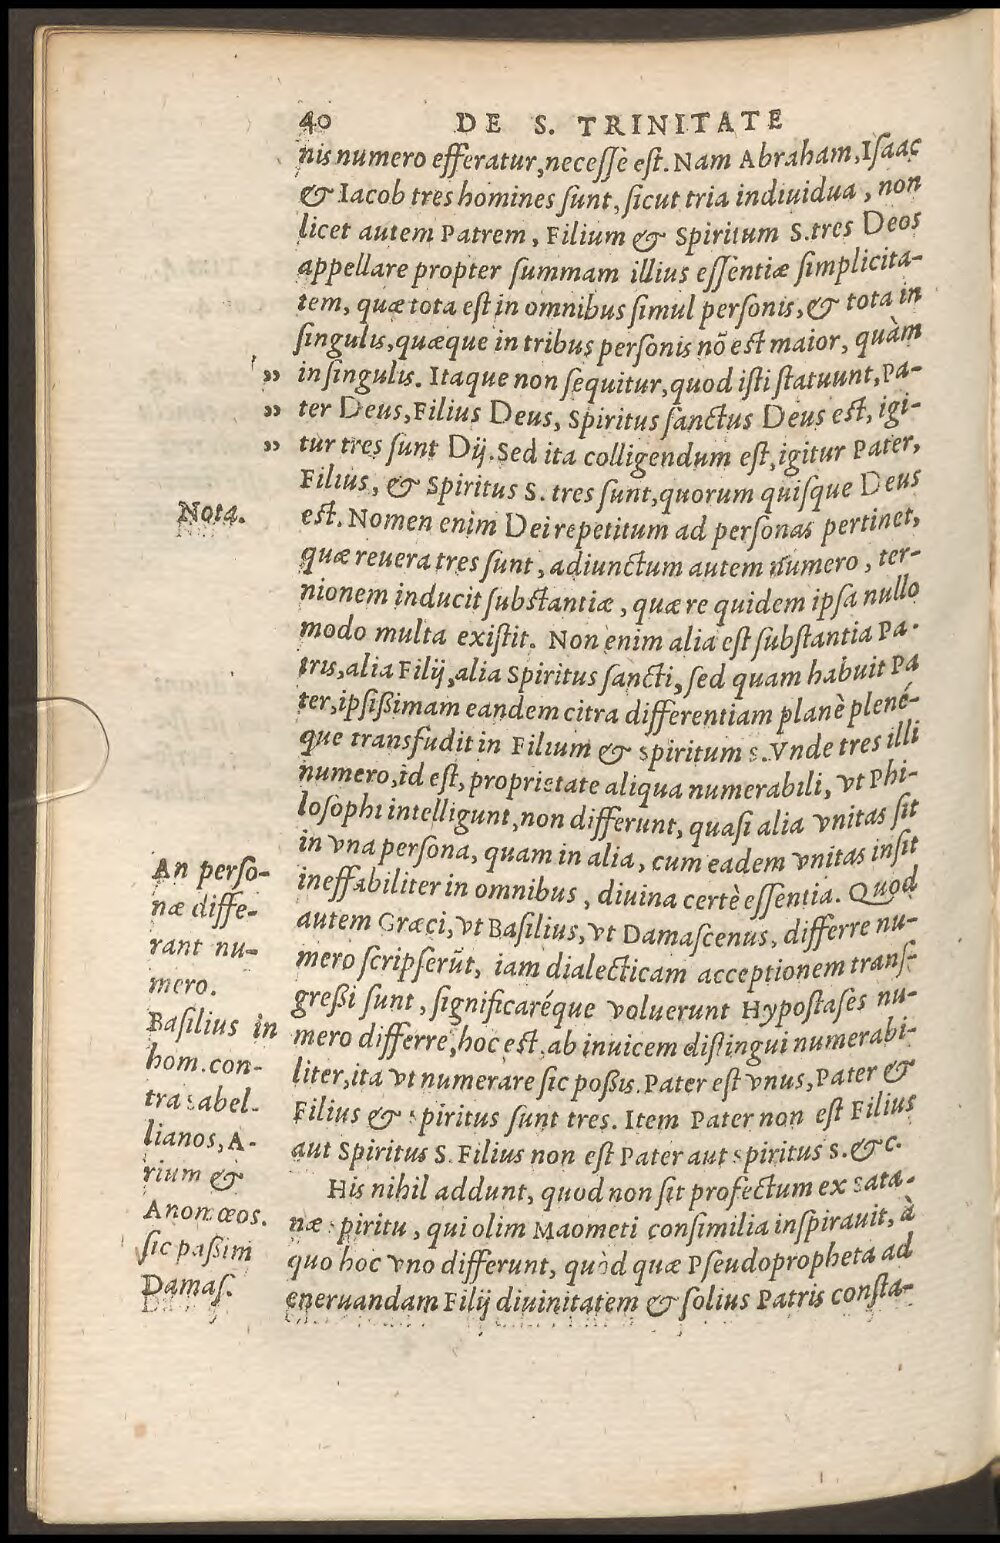 40 DE S. TRINITATE
nis numero efferatur, necesse est. Nam Abraham, Isaac
& Iacob tres homines sunt, sicut tria indiuidua, non
licet autem Patrem, Filium & Spiritum S. tres Deos
appellare propter summam illius essentiæ simplicita-
tem, quæ tota est in omnibus simul personis, & tota in
singulis, quæque in tribus personis nõ est maior, quàm
" in singulis. Itaque non sequitur, quod isti statuunt, Pa-
" ter Deus, Filius Deus, Spiritus sanctus Deus est, igi-
" tur tres sunt Dij. Sed ita colligendum est, igitur Pater,
Filius, & Spiritus S. tres sunt, quorum quisque Deus
Nota.
est. Nomen enim Dei repetitum ad personas pertinet,
quæ reuera tres sunt, adiunctum autem numero, ter-
nionem inducit substantiæ, quæ re quidem ipsa nullo
modo multa existit. Non enim alia est substantia Pa-
tris, alia Filij, alia Spiritus sancti, sed quam habuit Pa
ter, ipsißimam eandem citra differentiam planè plené-
que transfudit in Filium & Spiritum S. Vnde tres illi
numero, id est, proprietate aliqua numerabili, vt Phi-
losophi intelligunt, non differunt, quasi alia vnitas sit
in vna persona, quam in alia, cum eadem vnitas insit
ineffabiliter in omnibus, diuina certè essentia. Quod
autem Græci, vt Basilius, vt Damascenus, differre nu-
mero scripserũt, iam dialecticam acceptionem trans-
greßi sunt, significaréque voluerunt Hypostases nu-
mero differre, hoc est, ab inuicem distingui numerabi-
liter, ita vt numerare sic poßis. Pater est vnus, Pater &
Filius & Spiritus sunt tres. Item Pater non est Filius
aut Spiritus S. Filius non est Pater aut Spiritus S. &c.
An perso-
næ diffe-
rant nu-
mero.
Basilius in
hom. con-
tra Sabel-
lianos, A-
rium &
Anomœos.
sic paßim
Damas.
His nihil addunt, quod non sit profectum ex Sata-
næ Spiritu, qui olim Maometi consimilia inspirauit, à
quo hoc vno differunt, quòd quæ Pseudopropheta ad
eneruandam Filij diuinitatem & solius Patris consta-